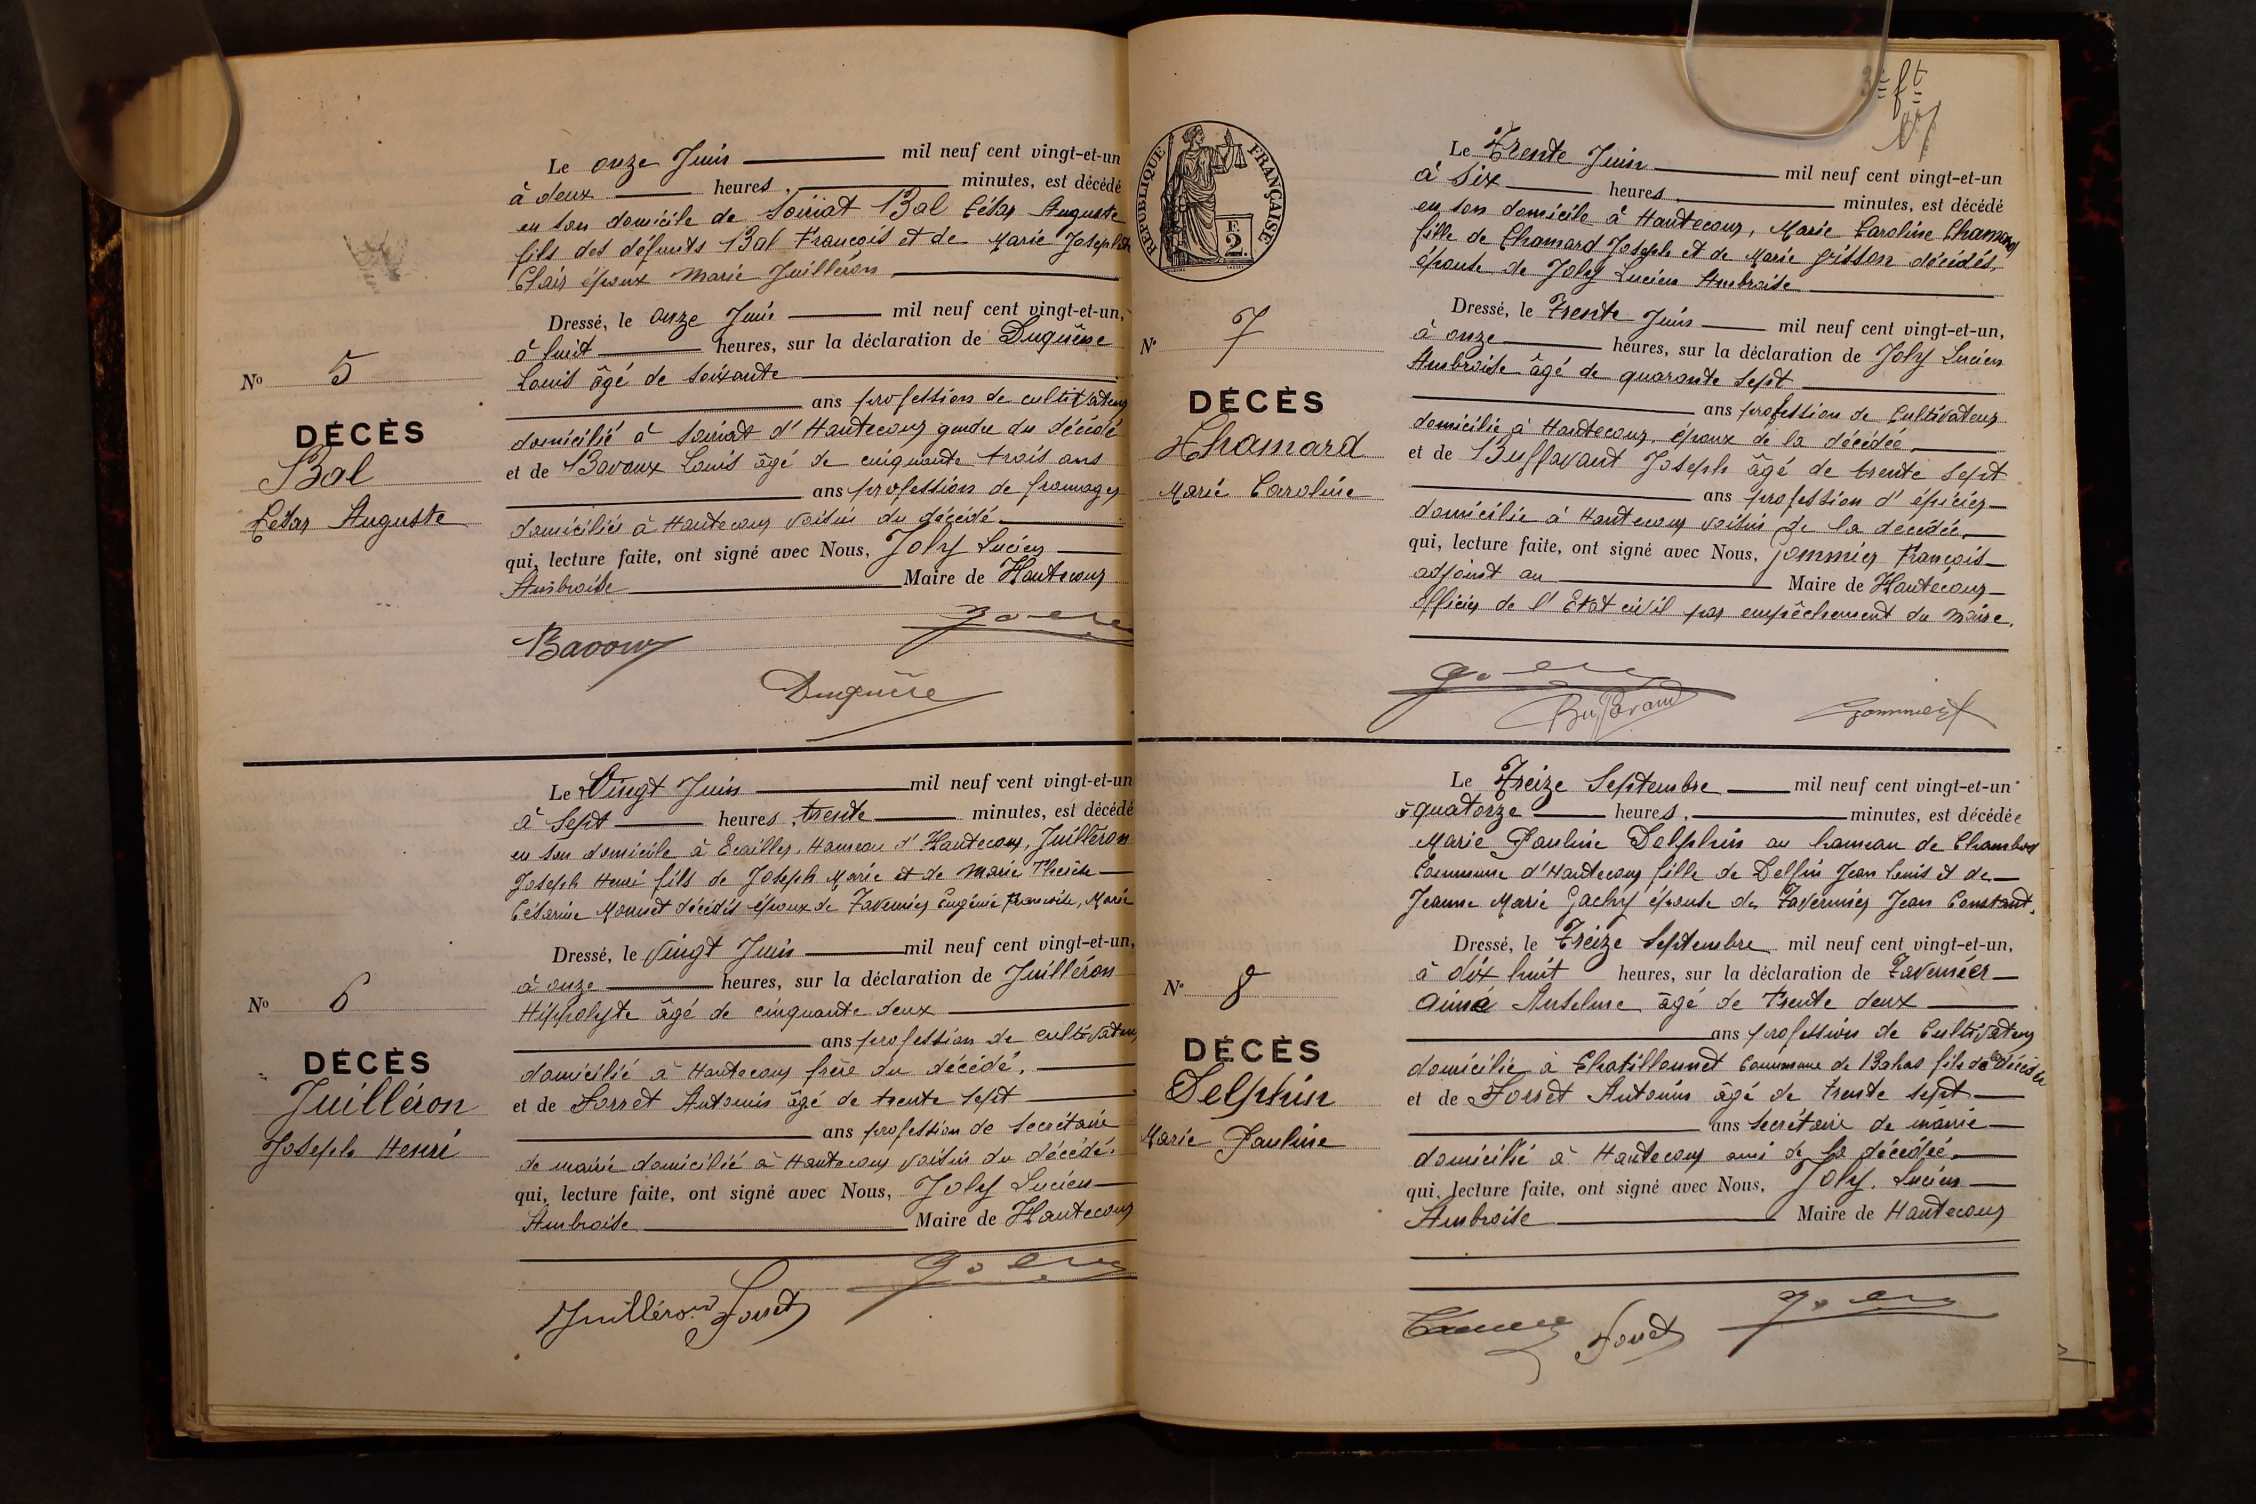 Le onze Juin mil neuf cent vingt-et-un
à deux heures, minutes, est décédé
en son domicile de Soiriat Bal César Auguste
fils des défunts Bal François et de Marie Josephte
Clair époux Marie Juilléron
Dressé, le onze Juin mil neuf cent vingt-et-un,
à huit heures, sur la déclaration de Duquêne
Louis âgé de soixante
ans profession de cultivateur
domicilié à Soiriat d'Hautecour gendre du décédé
et de Bavoux Louis âgé de cinquante trois ans
ans profession de fromager
domiciliés à Hautecour voisin du décédé
qui, lecture faite, ont signé avec Nous, Joly Lucien
Ambroise Maire de Hautecour
No 5
DÉCÈS
Bal
César Auguste
Bavoux
Joly
Duquêne
Le Vingt Juin mil neuf cent vingt-et-un
à Sept heures, trente minutes, est décédé
en son domicile à Ecailles, Hameau d'Hautecour, Juilléron
Joseph Henri fils de Joseph Marie et de Marie Thérèse
Césarine Monnet décédés époux de Tavernier Eugénie Françoise, Marie
Dressé, le vingt Juin mil neuf cent vingt-et-un,
à onze heures, sur la déclaration de Juilléron
Hippolyte âgé de cinquante deux
ans profession de cultivateur
domicilié à Hautecour frère du décédé,
et de Forret Antonin âgé de trente sept
ans profession de secrétaire
de mairie domicilié à Hautecour voisin du décédé.
qui, lecture faite, ont signé avec Nous, Joly Lucien
Ambroise Maire de Hautecour
No 6
DÉCÈS
Juilléron
Joseph Henri
Juilléron Forret Joly
RÉPUBLIQUE FRANÇAISE
F.
2
Le Trente Juin mil neuf cent vingt-et-un
à six heures, minutes, est décédé
en son domicile à Hautecour, Marie Caroline Chamard
fille de Chamard Joseph et de Marie Grisson décédés,
épouse de Joly Lucien Ambroise
Dressé, le Trente Juin mil neuf cent vingt-et-un,
à onze heures, sur la déclaration de Joly Lucien
Ambroise âgé de quarante sept
ans profession de Cultivateur
domicilié à Hautecour, époux de la décédée,
et de Buffavant Joseph âgé de trente sept
ans profession d'épicier
domicilié à Hautecour voisin de la décédée,
qui, lecture faite, ont signé avec Nous, Gommier François
adjoint au Maire de Hautecour
officier de l'Etat civil par empêchement du Maire.
No 7
DÉCÈS
Chamard
Marie Caroline
Joly
Buffavant
Gommier
Le Treize Septembre mil neuf cent vingt-et-un
à quatorze heures, minutes, est décédée
Marie Pauline Delphin au hameau de Chambod
Commune d'Hautecour fille de Delfin Jean Louis et de
Jeanne Marie Gachy épouse de Tavernier Jean Constant.
Dressé, le Treize Septembre mil neuf cent vingt-et-un,
à dix huit heures, sur la déclaration de Tavernier
Aimé Anselme âgé de trente deux
ans profession de Cultivateur
domicilié à Chatillonnet Commune de Bohas fils de la décédée
et de Forret Antonin âgé de trente sept
ans secrétaire de mairie
domicilié à Hautecour ami de la décédée,
qui, lecture faite, ont signé avec Nous, Joly, Lucien
Ambroise Maire de Hautecour
No 8
DÉCÈS
Delphin
Marie Pauline
Forret Joly